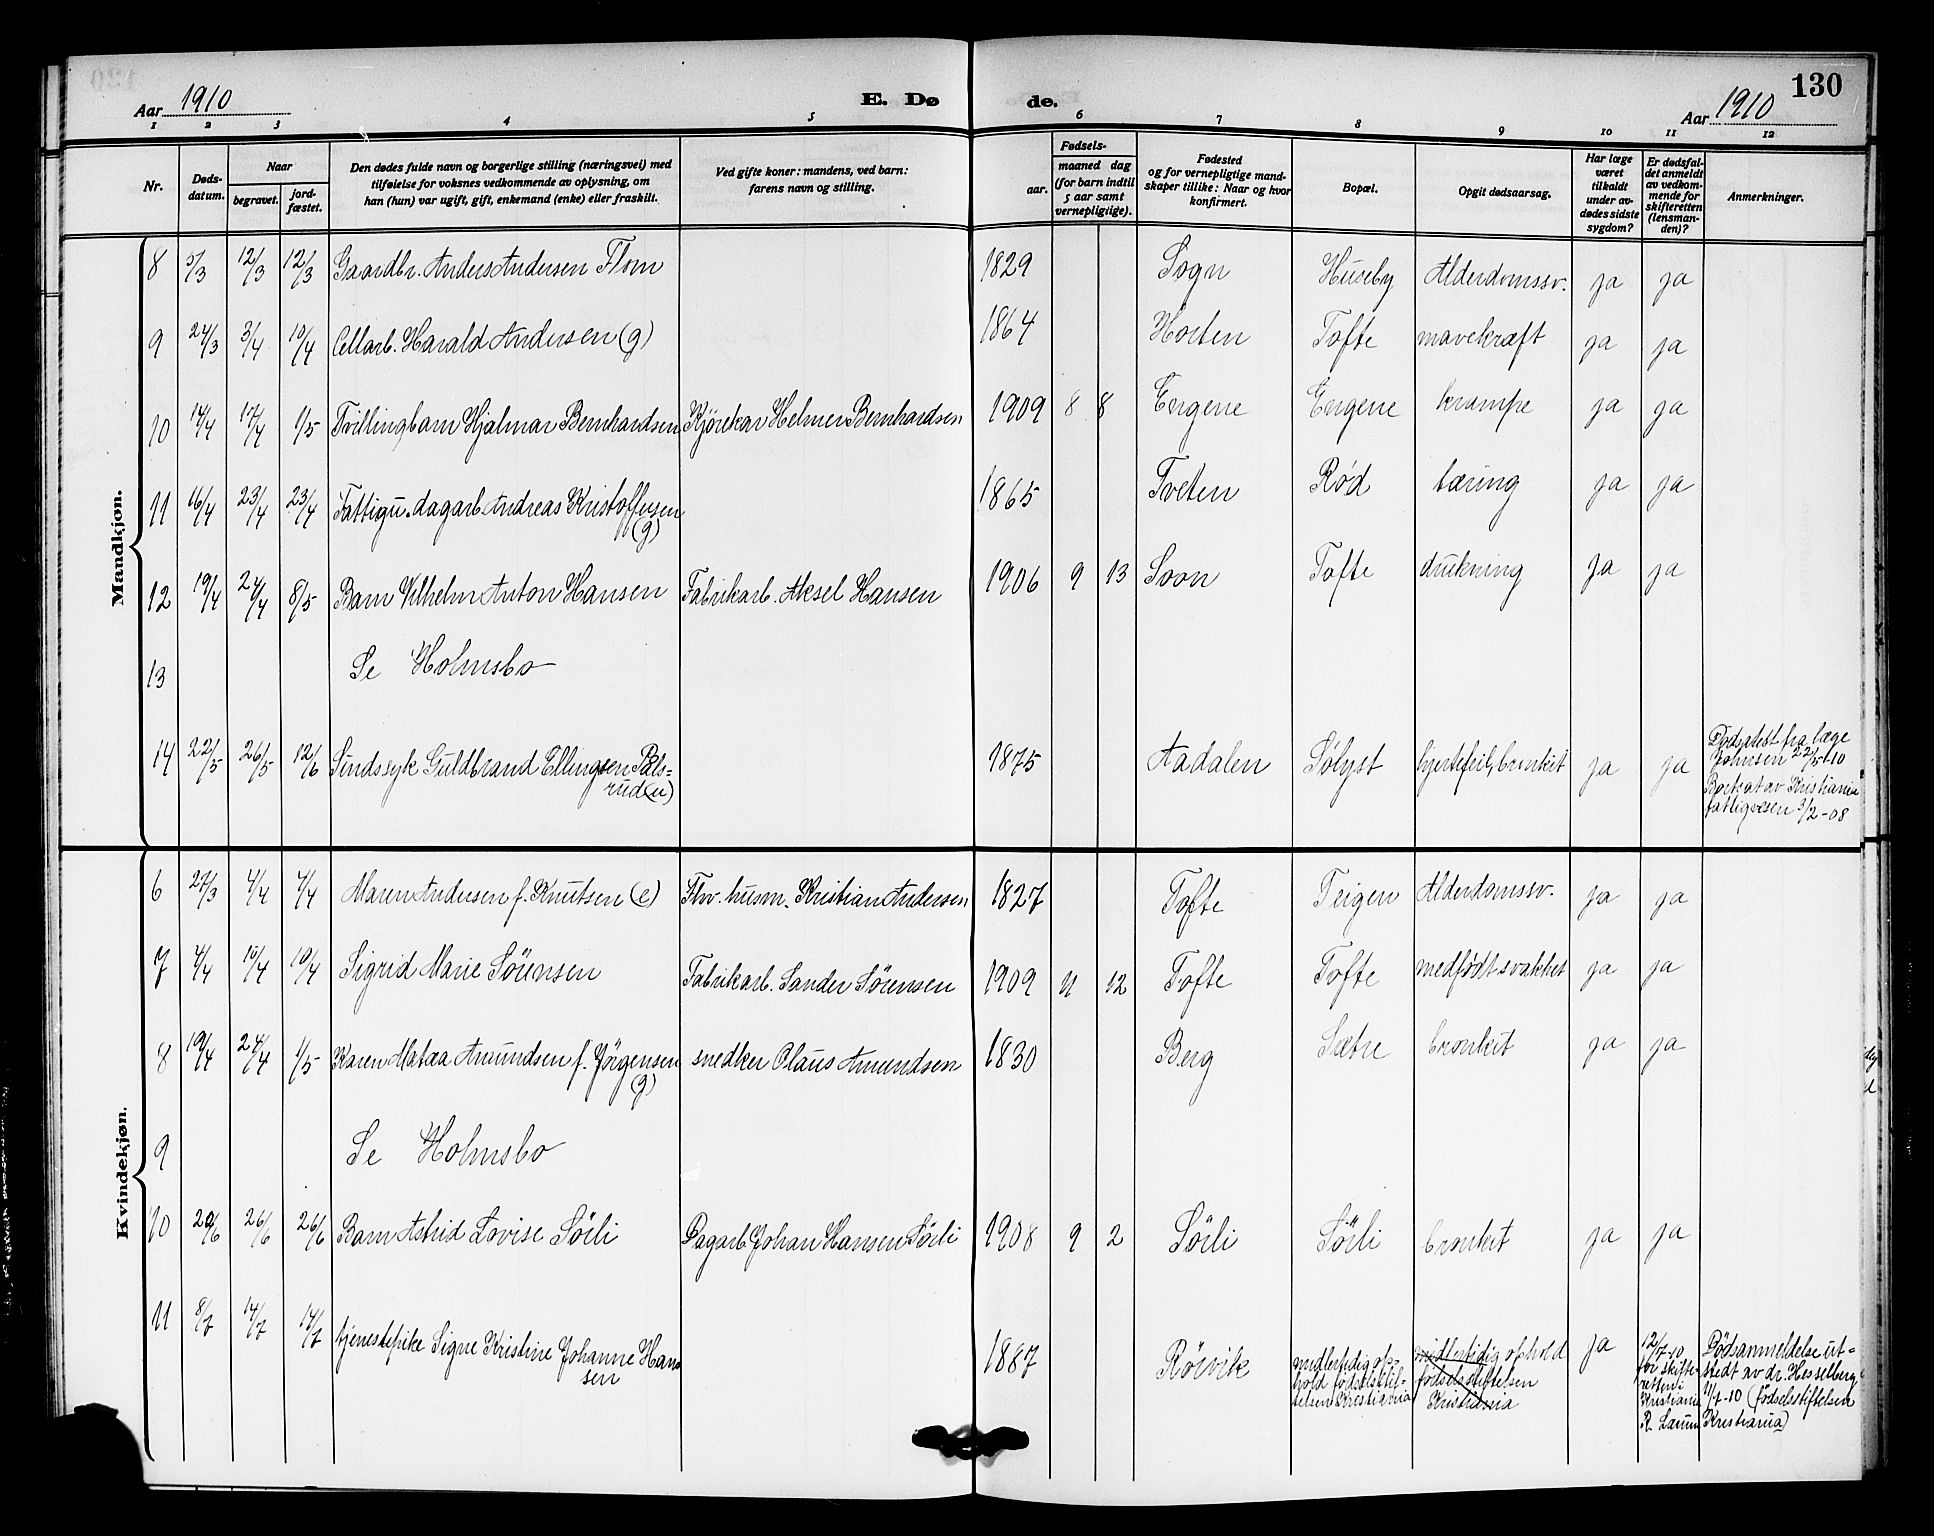 130
Aar 1910
E. Dø
de.
Aar 1910
1 2 3 4 5 6 7 8 9 10 11 12
Nr.
Døds-
datum.
Naar
begravet.
jord-
fæstet.
Den dødes fulde navn og borgerlige stilling (næringsvei) med
tilføielse for voksnes vedkommende av oplysning, om
han (hun) var ugift, gift, enkemand (enke) eller fraskilt.
Ved gifte koner: mandens, ved barn:
farens navn og stilling.
Fødsels-
aar.
maaned dag
(for barn indtil
5 aar samt
vernepligtige).
Fødested
og for vernepligtige mand-
skaper tillike: Naar og hvor
konfirmert.
Bopæl.
Opgit dødsaarsag.
Har læge
været
tilkaldt
under av-
dødes sidste
sygdom?
Er dødsfal-
det anmeldt
av vedkom-
mende for
skifteretten
(lensman-
den)?
Anmerkninger.
Mandkjøn.
8 5/3 12/3 12/3 Gaardbr. Anders Andersen Flom 1829 Sogn Huseby Alderdomssv. ja ja
9 24/3 3/4 10/4 Cellarb. Harald Andersen (g) 1864 Horten Tofte mavekræft ja ja
10 14/4 17/4 1/5 Tvillingbarn Hjalmar Bernhardsen Kjørekar Helmer Bernhardsen 1909 8 8 Engene Engene krampe ja ja
11 16/4 23/4 23/4 Fattigu. dagarb. Andreas Kristoffersen 1865 Tveten Rød tæring ja ja
(g)
12 19/4 24/4 8/5 Barn Vilhelm Anton Hansen Fabrikarb. Aksel Hansen 1906 9 13 Soon Tofte drukning ja ja
13 Se Holmsbo
14 22/5 26/5 12/6 Sindssyk Guldbrand Ellingsen Pals- 1875 Aadalen Sølyst hjertefeil, bronkit ja ja
rud (u)
Dødsattest fra læge
Johnsen 22/5-10
Bortsat av Kristiania
fattigvesen 3/2-08
Kvindekjøn.
6 27/3 4/4 4/4 Maren Andersen f. Knutsen (e) Fhv. husm. Kristian Andersen 1827 Tofte Teigen Alderdomssv. ja ja
7 4/4 10/4 10/4 Sigrid Marie Sörensen Fabrikarb. Sander Sörensen 1909 11 12 Tofte Tofte medfödt svakhet ja ja
8 19/4 24/4 1/5 Karen Matea Amundsen f. Jörgensen snedker Olaus Amundsen 1830 Berg Sætre bronkit ja ja
(g)
9 Se Holmsbo
10 20/6 26/6 26/6 Barn Astrid Lovise Sörli Dagarb. Johan Hansen Sörli 1908 9 2 Sörli Sörli bronkit ja ja
11 8/7 14/7 14/7 tjenestepike Signe Kristine Johanne Han- 1887 Rörvik
sen
midlertidig op-
hold fødselsstif-
telsen Kristiania
midlertidig ophold
fødselsstiftelsen
Kristiania
ja
12/7-10
for skifte-
retten i
Kristiania
R.
Dødsanmeldelse ut-
stedt av dr. Hesselberg
11/7-10 (fødselsstiftelsen
Kristiania)